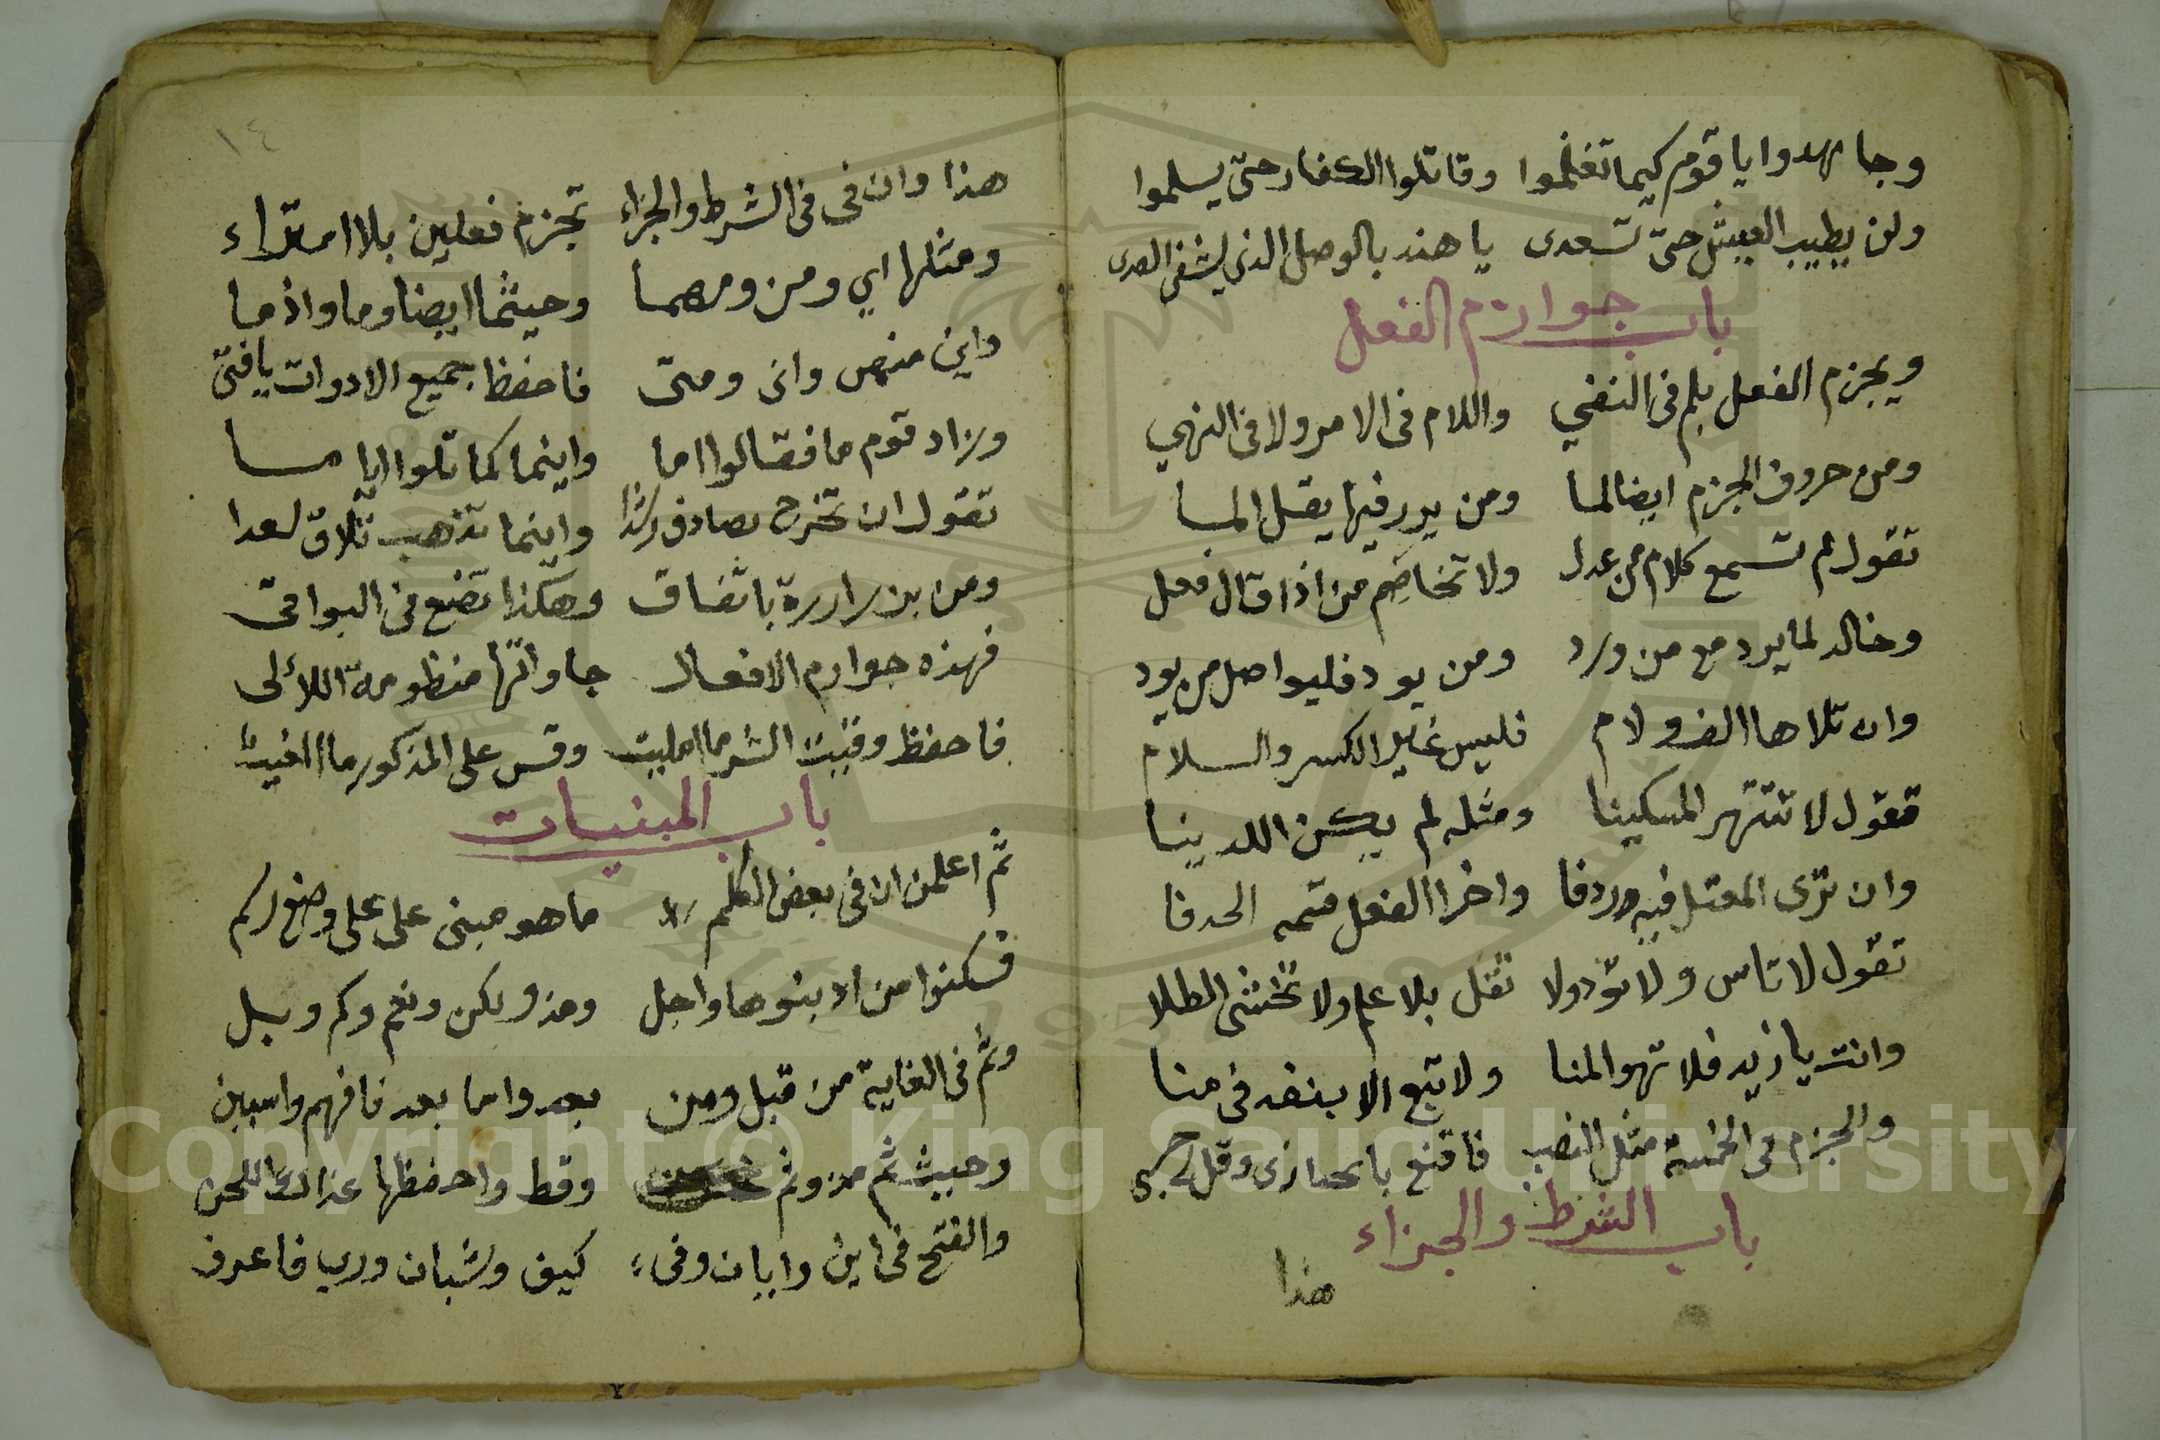 وجاهدوا يا قوم كيما تغنموا وقاتلوا الكفار حتى يسلموا
ولن يطيب العيش حتى تسعدى يا هند بالوصل الذى يشفى الصدى
باب جوازم الفعل
ويجزم الفعل بلم فى النفي واللام فى الامر ولا فى النهي
ومن حروف الجزم ايضا لما ومن يزد فيها يقل الما
تقول لم تسمع كلام من عدل ولا تخاصم من اذا قال فعل
وخالد لما يرد مع من ورد ومن يود فليواصل من يود
وان تلاها الف ولام فليس غير الكسر والسلام
تقول لا تنتهر المسكينا ومثله لم يكن الذينا
وان ترى المعتل فيه وردفا واخر الفعل فتمه الحدفا
تقول لا تاس ولا تؤذ ولا تقل بلا علم ولا تخشى الطلا
وانت يا زيد فلا تهو المنا ولا تبع الا بنقد فى منا
والجزم فى الخمسة مثل النصب فاقنع بايجازى وقل لى حسبى
باب الشرط والجزاء
هذا
١٤
هذا وان فى فى الشرط والجزاء تجزم فعلين بلا امتراء
ومثلها اي ومن ومهما وحيثما ايضا وما واذما
واين منهن وانى ومتى فاحفظ جميع الادوات يا فتى
وزاد قوم ما فقالوا اما واينما كما تلوا اياما
تقول ان تخرج تصادف رشدا واينما تذهب تلاق سعدا
ومن يزر ازره باتفاق وهكذا تصنع فى البواقى
فهذه جوازم الافعال جاوتها منظومة اللألى
فاحفظ وقيت الشر ما امليت وقس على المذكور ما الغيت
باب المبنيات
ثم اعلمن ان فى بعض الكلم ما هو مبنى على وضع رسم
فسكنوا من اذ بنوها واجل ومذ ولكن ونعم وكم وبل
وضم فى الغاية من قبل ومن بعد واما بعد فافهم واستبن
وحيث ثم منذ ثم نحن وقط واحفظها عداك اللحن
والفتح فى اين وايان وفى كيف وشتان ورب فاعرف
Copyright © King Saud University
1957